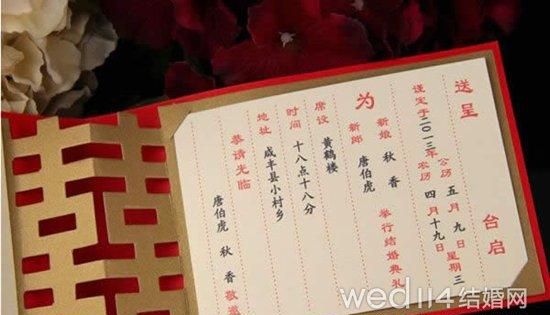 送呈 台启
谨定于二〇一三年 公历 五月九日 星期三
农历 四月十九日
为 新娘 秋香
新郎 唐伯虎 举行结婚典礼
席设 黄鹤楼
时间 十八点十八分
地址 咸丰县小村乡
恭请光临
唐伯虎 秋香 敬邀
wed114结婚网